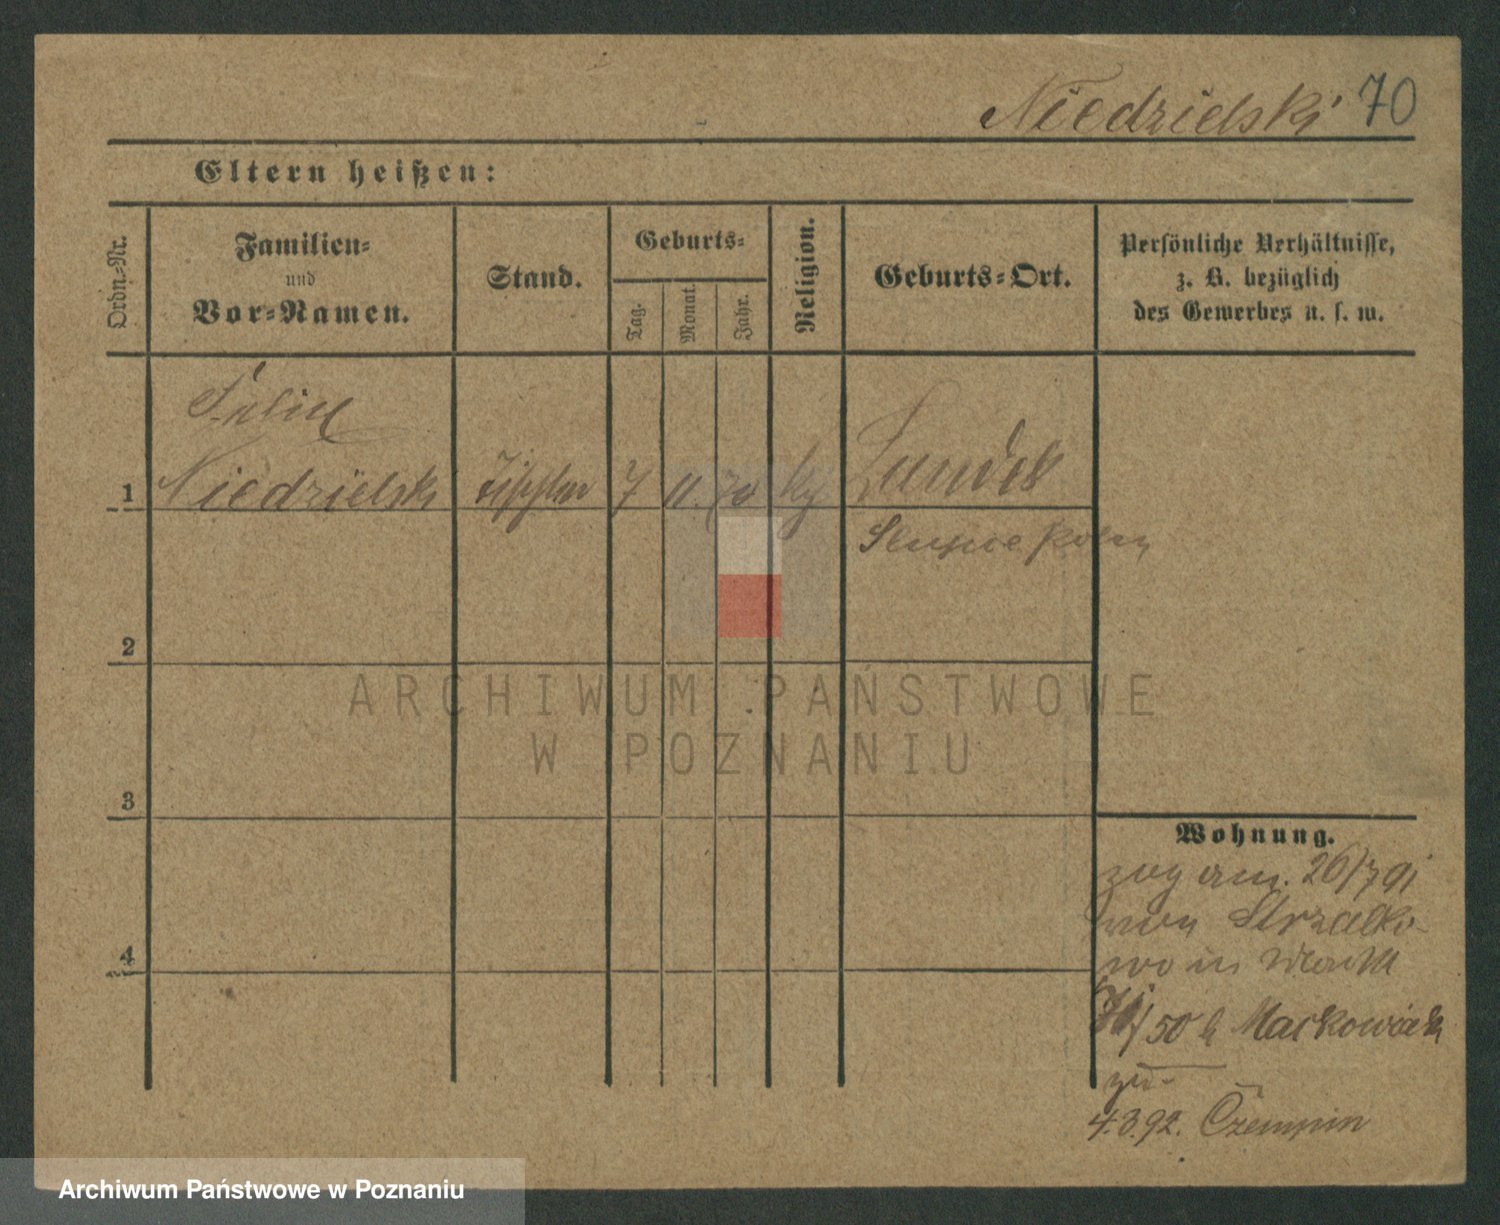 Niedzielski 70
Eltern heißen:
Ordn.-Nr.
Familien-
und
Vor-Namen.
Stand.
Geburts-
Tag.
Monat.
Jahr.
Religion.
Geburts-Ort.
Persönliche Verhältnisse,
z. B. bezüglich
des Gewerbes u. s. w.
Felix
1 Niedzielski Tischler 7 11. 70 kg
2
3
4
Wohnung.
zog am. 26/7 91
von Strzalko-
wo in
50 b Mackowiak
4.3.92. Czempin
ARCHIWUM PAŃSTWOWE
W POZNANIU
Archiwum Państwowe w Poznaniu